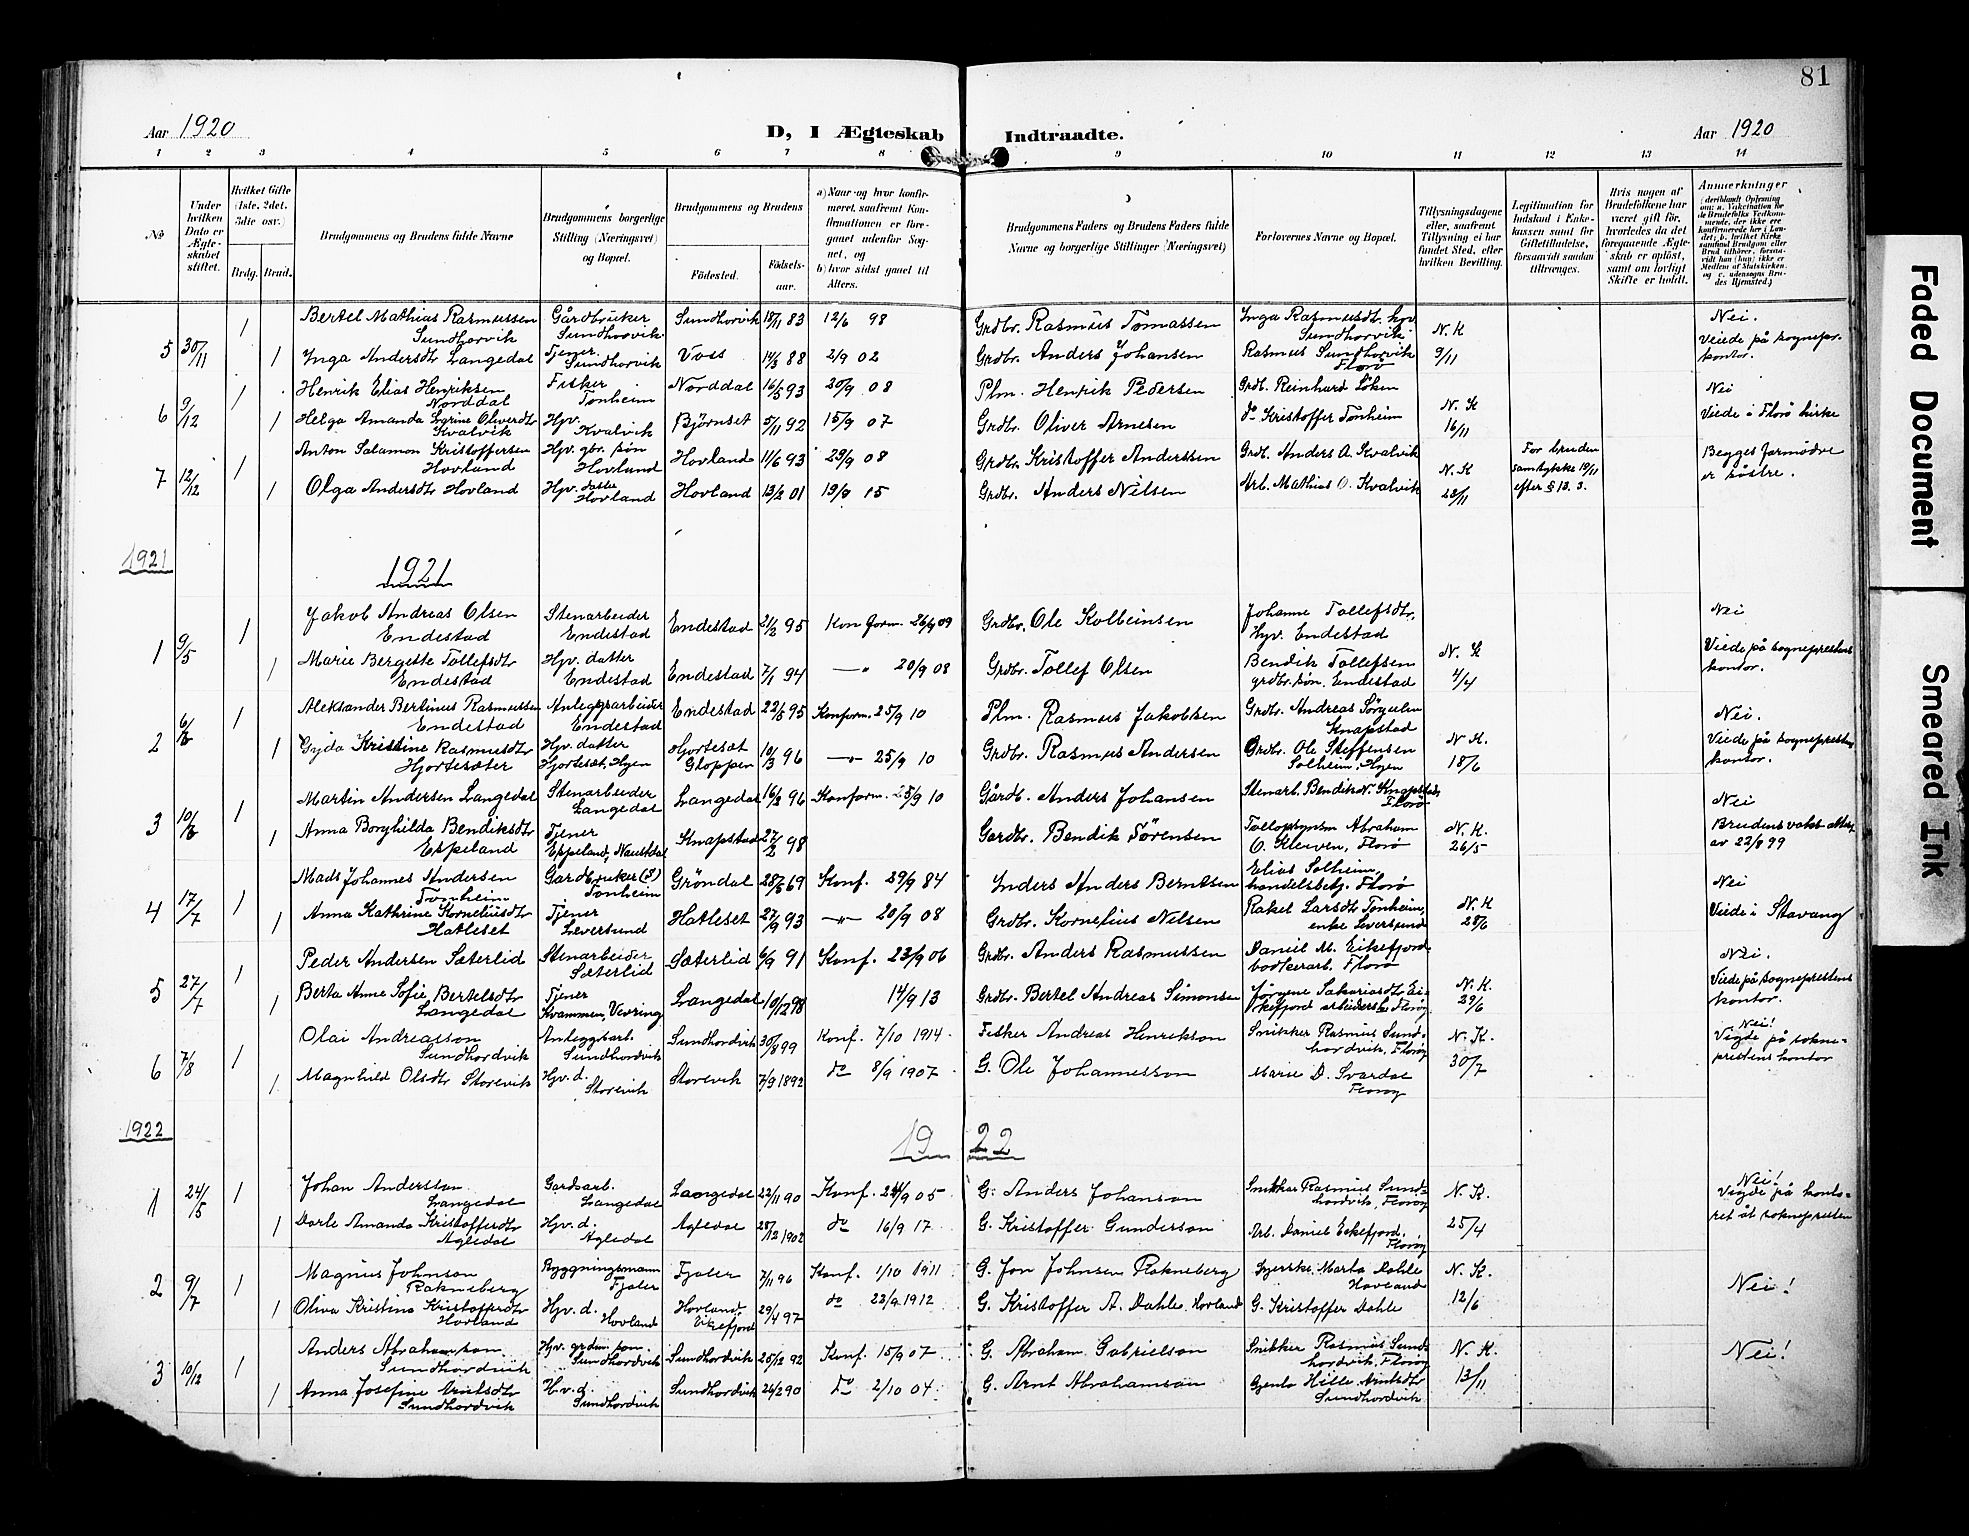 81
Aar 1920
D, I Ægteskab Indtraadte.
Aar 1920
1 2 3 4 5 6 7 8 9 10 11 12 13 14
No
Under hvilken Dato er Ægteskabet stiftet.
Hvilket Gifte (1ste, 2det, 3die osv.)
Brdg. Brud.
Brudgommens og Brudens fulde Navne
Brudgommens borgerlige Stilling (Næringsvei) og Bopæl.
Brudgommens og Brudens
Fødested.
Fødselsaar.
a) Naar og hvor konfirmeret, saafremt Konfirmationen er foregaaet udenfor Sognet, og
b) hvor sidst gaaet til Alters.
Brudgommens Faders og Brudens Faders fulde Navne og borgerlige Stillinger (Næringsvei)
Forlovernes Navne og Bopæl.
Tillysningsdagene eller, saafremt Tillysning ei har fundet Sted, efter hvilken Bevilling.
Legitimation for Indskud i Enkekassen samt for Giftetilladelse, forsaavidt saadan tiltrænges.
Hvis nogen af Brudefolkene har været gift før, hvorledes da det foregaaende Ægteskab er opløst, samt om lovligt Skifte er holdt.
Anmerkninger
5 30/11 1 Bertel Mathias Rasmussen Sundhorvik Gårdbruker Sundhorvik Sundhorvik 18/11 83 12/6 98 Grdbr. Rasmus Tomassen Inga Rasmusdt. hjv. Sundhorvik N. K 9/11 Nei. Viede på sognepr. kontor.
1 Inga Andersdtr Langedal Tjener Sundhorvik Voss 14/3 88 2/9 02 Grdbr. Anders Johansen Rasmus Sundhorvik Florö
6 9/12 1 Henrik Elias Henriksen Norddal Fisker Tonheim Norddal 16/5 93 20/9 08 Plm. Henrik Pedersen Grdb. Reinhard Löken N. K 16/11 Nei Viede i Florö kirke
1 Helga Amanda Oliverdtr Kvalvik Hjv. Kvalvik Björnset 5/11 92 15/9 07 Grdbr. Oliver Arnesen do Kristoffer Tonheim
7 12/12 1 Anton Salamon Kristoffersen Hovland Hjv. gbr. sön Hovland Hovland 11/6 93 29/9 08 Grdbr. Kristoffer Anderssen Grdb. Anders A. Kvalvik N. K 23/11 For bruden samtykke 19/11 efter § 13. 3. Begges farmödre er söstre.
1 Olga Andersdtr Hovland Hjv. datter Hovland Hovland 13/2 01 19/9 15 Grdbr. Anders Nilsen Arb. Mathias O. Kvalvik
1921
1921
1 9/5 1 Jakob Andreas Olsen Endestad Stenarbeider Endestad Endestad 21/2 95 Konform. 26/9 09 Grdbr. Ole Kolbeinsen Johanne Tollefsdtr, Hjv. Endestad N. K 4/4 Nei Viede på sogneprestens kontor.
1 Marie Bergette Tollefsdtr Endestad Hjv. datter Endestad Endestad 7/1 94 —"— 20/9 08 Grdbr. Tollef Olsen Bendik Tollefsen grdbr. sön. Endestad
2 6/ 1 Aleksander Bertinus Rasmussen Endestad Anlegsarbeider Endestad Endestad 22/5 95 Konform. 25/9 10 Plm. Rasmus Jakobsen Grdbr. Andreas Knapstad N. K. 18/6 Nei. Viede på sogneprestens kontor.
1 Gyda Kristine Rasmusdtr Hjortesæter Hjv. datter Hjortesæt, Hyen Hjortesæt Gloppen 10/3 96 —"— 25/9 10 Grdbr. Rasmus Andersen Grdbr. Ole Steffensen Solheim. Hyen
3 10/ 1 Martin Andersen Langedal Stenarbeider Langedal Langedal 16/2 96 Konform. 25/9 10 Gårdb. Anders Johansen Stenarb. Bendik N. Knapstad, Florö N. K. 26/5 Nei Brudens vaks.attest av 22/8 99
1 Anna Borghilda Bendiksdtr Espeland Tjener Espeland, Naustdal Knapstad 27/2 98 Gardbr. Bendik Sörensen Abraham O. Kleiven, Florö
4 17/7 1 Mads Johannes Andersen Tonheim Gardbruker Tonheim Gröndal 28/5 69 Konf. 29/9 84 Inders Anders Berntsen Elias Solheim, handelsbetj. Florö N. K 28/6 Nei Viede i Stavang
1 Anna Kathrine Korneliusdtr Hatleset Tjener Leversund Hatleset 27/9 93 —"— 20/9 08 Grdbr. Kornelius Nilsen Rakel Larsdtr Tonheim, enke Leversund
5 27/7 1 Peder Andersen Sæterlid Stenarbeider Sæterlid Sæterlid 6/9 91 Konf. 23/9 06 Grdbr. Anders Rasmussen Daniel M. Eikefjord bödkerarb. Florö N. K. 29/6 Nei. Viede på sogneprestens kontor.
1 Berta Anne Sofie Bertelsdtr Langedal Tjener Kvammen, Vevring Langedal 10/12 98 14/9 13 Grdbr. Bertel Andreas Simonsen Jörgine Sakariasdtr Eikefjord Floröy
6 7/8 1 Olai Andreasson Sundhordvik Anleggsarb. Sundhordvik Sundhordvik 30/8 99 Konf. 7/10 1914 Fisker Andreas Henrikson Snikker Rasmus Sundhordvik, Floröy N. K. 30/7 Nei! Vigde på sokneprestens kontor
1 Magnhild Olsdtr Storevik Hjv. d. Storevik Storevik 7/9 1892 do 8/9 1907 G. Ole Johannesson Marie D. Svardal Floröy
1922
1922
1 24/5 1 Johan Andersson Langedal Gardsarb. Langedal Langedal 22/11 90 Konf. 24/9 05 G. Anders Johanson Snikkar Rasmus Sundhordvik, Floröy N. K. 25/4 Nei! Vigde på kontoret åt soknepresten
1 Dorte Amanda Kristoffersdtr Agledal Hjv. d. Agledal Agledal 28/12 1902 do 16/9 17 G. Kristoffer Gunderson Arb. Daniel Eikefjord. Floröy
2 9/7 1 Magnus Johnson Rakneberg Byggningsmann Fjaler Fjaler 7/11 96 Konf. 1/10 1911 G. Jon Johnsen Rakneberg Syerske Marta Dahle Hovland N. K. 12/6 Nei!
1 Oliva Kristina Kristoffersdtr Hovland Hjv. d. Hovland Hovland Eikefjord 29/4 97 do 22/9 1912 G. Kristoffer A. Dahle. Hovland G. Kristoffer Dahle
3 10/12 1 Anders Abrahamson Sundhordvik Hjv. son Sundhordvik Sundhordvik 25/2 92 Konf. 15/9 07 G. Abraham Gabrielson Snikker Rasmus Sundhordvik, Floröy N. K. 13/11 Nei!
1 Anna Josefine Arntsdtr Sundhordvik H.v.d. Sundhordvik Sundhordvik 26/2 90 do 2/10 04 G. Arnt Abrahamson Gjenta Hille Arntsdtr Sundhordvik
Faded Document
Smeared Ink